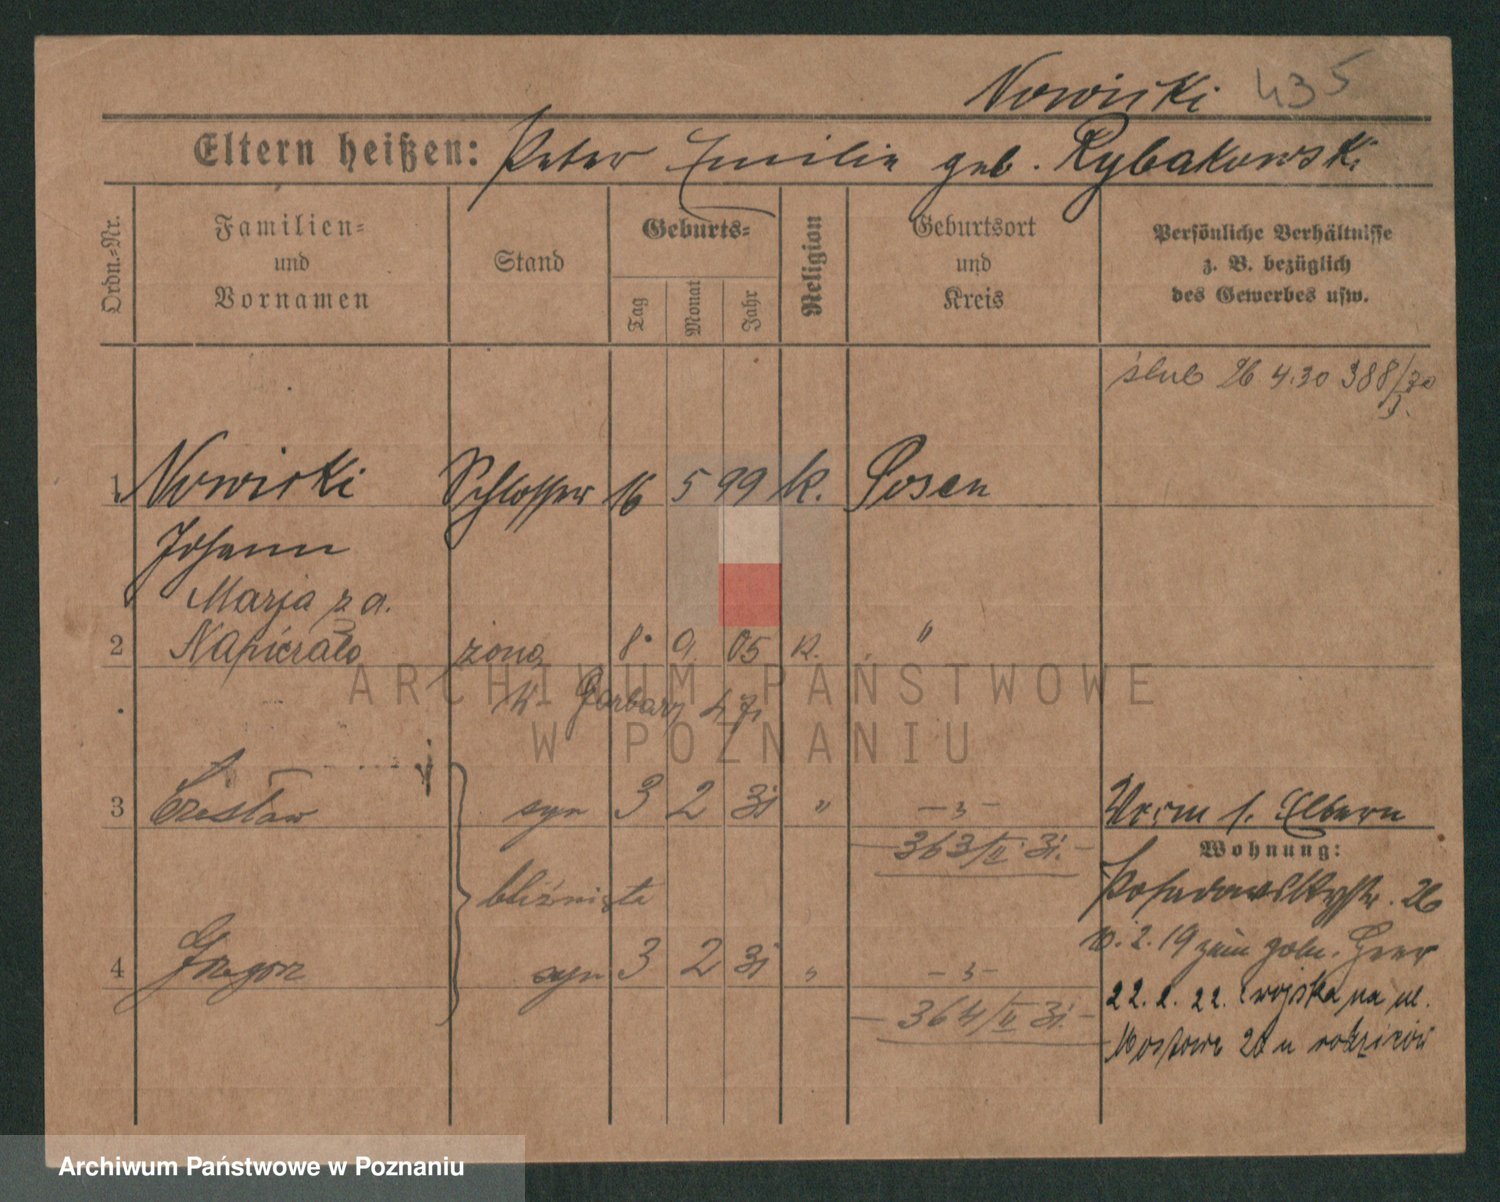 Nowicki 435
Eltern heißen: Peter Emilie geb. Rybakowski
Ordn.-Nr.
Familien- und Vornamen
Stand
Geburts-
Tag
Monat
Jahr
Religion
Geburtsort und Kreis
Persönliche Verhältnisse z. B. bezüglich des Gewerbes usw.
ślub 26 4.30 388/30
1 Nowicki Schlosser 16 5 99 k. Posen
Johann
Marja z d.
2 Napierało żona 8. 9 05 k. "
Garbary 47
3 Czesław syn 3 2 31 " - " -
Vorm s. Eltern
363/II 31.
Wohnung:
bliźnięta
Posadowskystr. 26
10.2.19 zum poln. Heer
4 Grzegorz syn 3 2 31 " - " -
22.2.22. z wojska na ul.
364/II 31.
Mostowa 20 u rodziców
ARCHIWUM PAŃSTWOWE
W POZNANIU
Archiwum Państwowe w Poznaniu